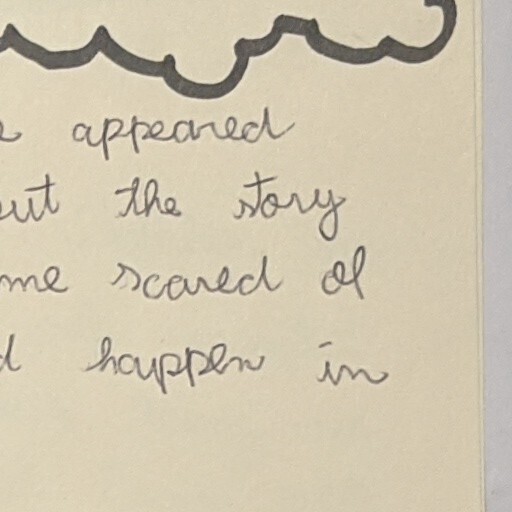 appeared
the story
me scared of
happen in